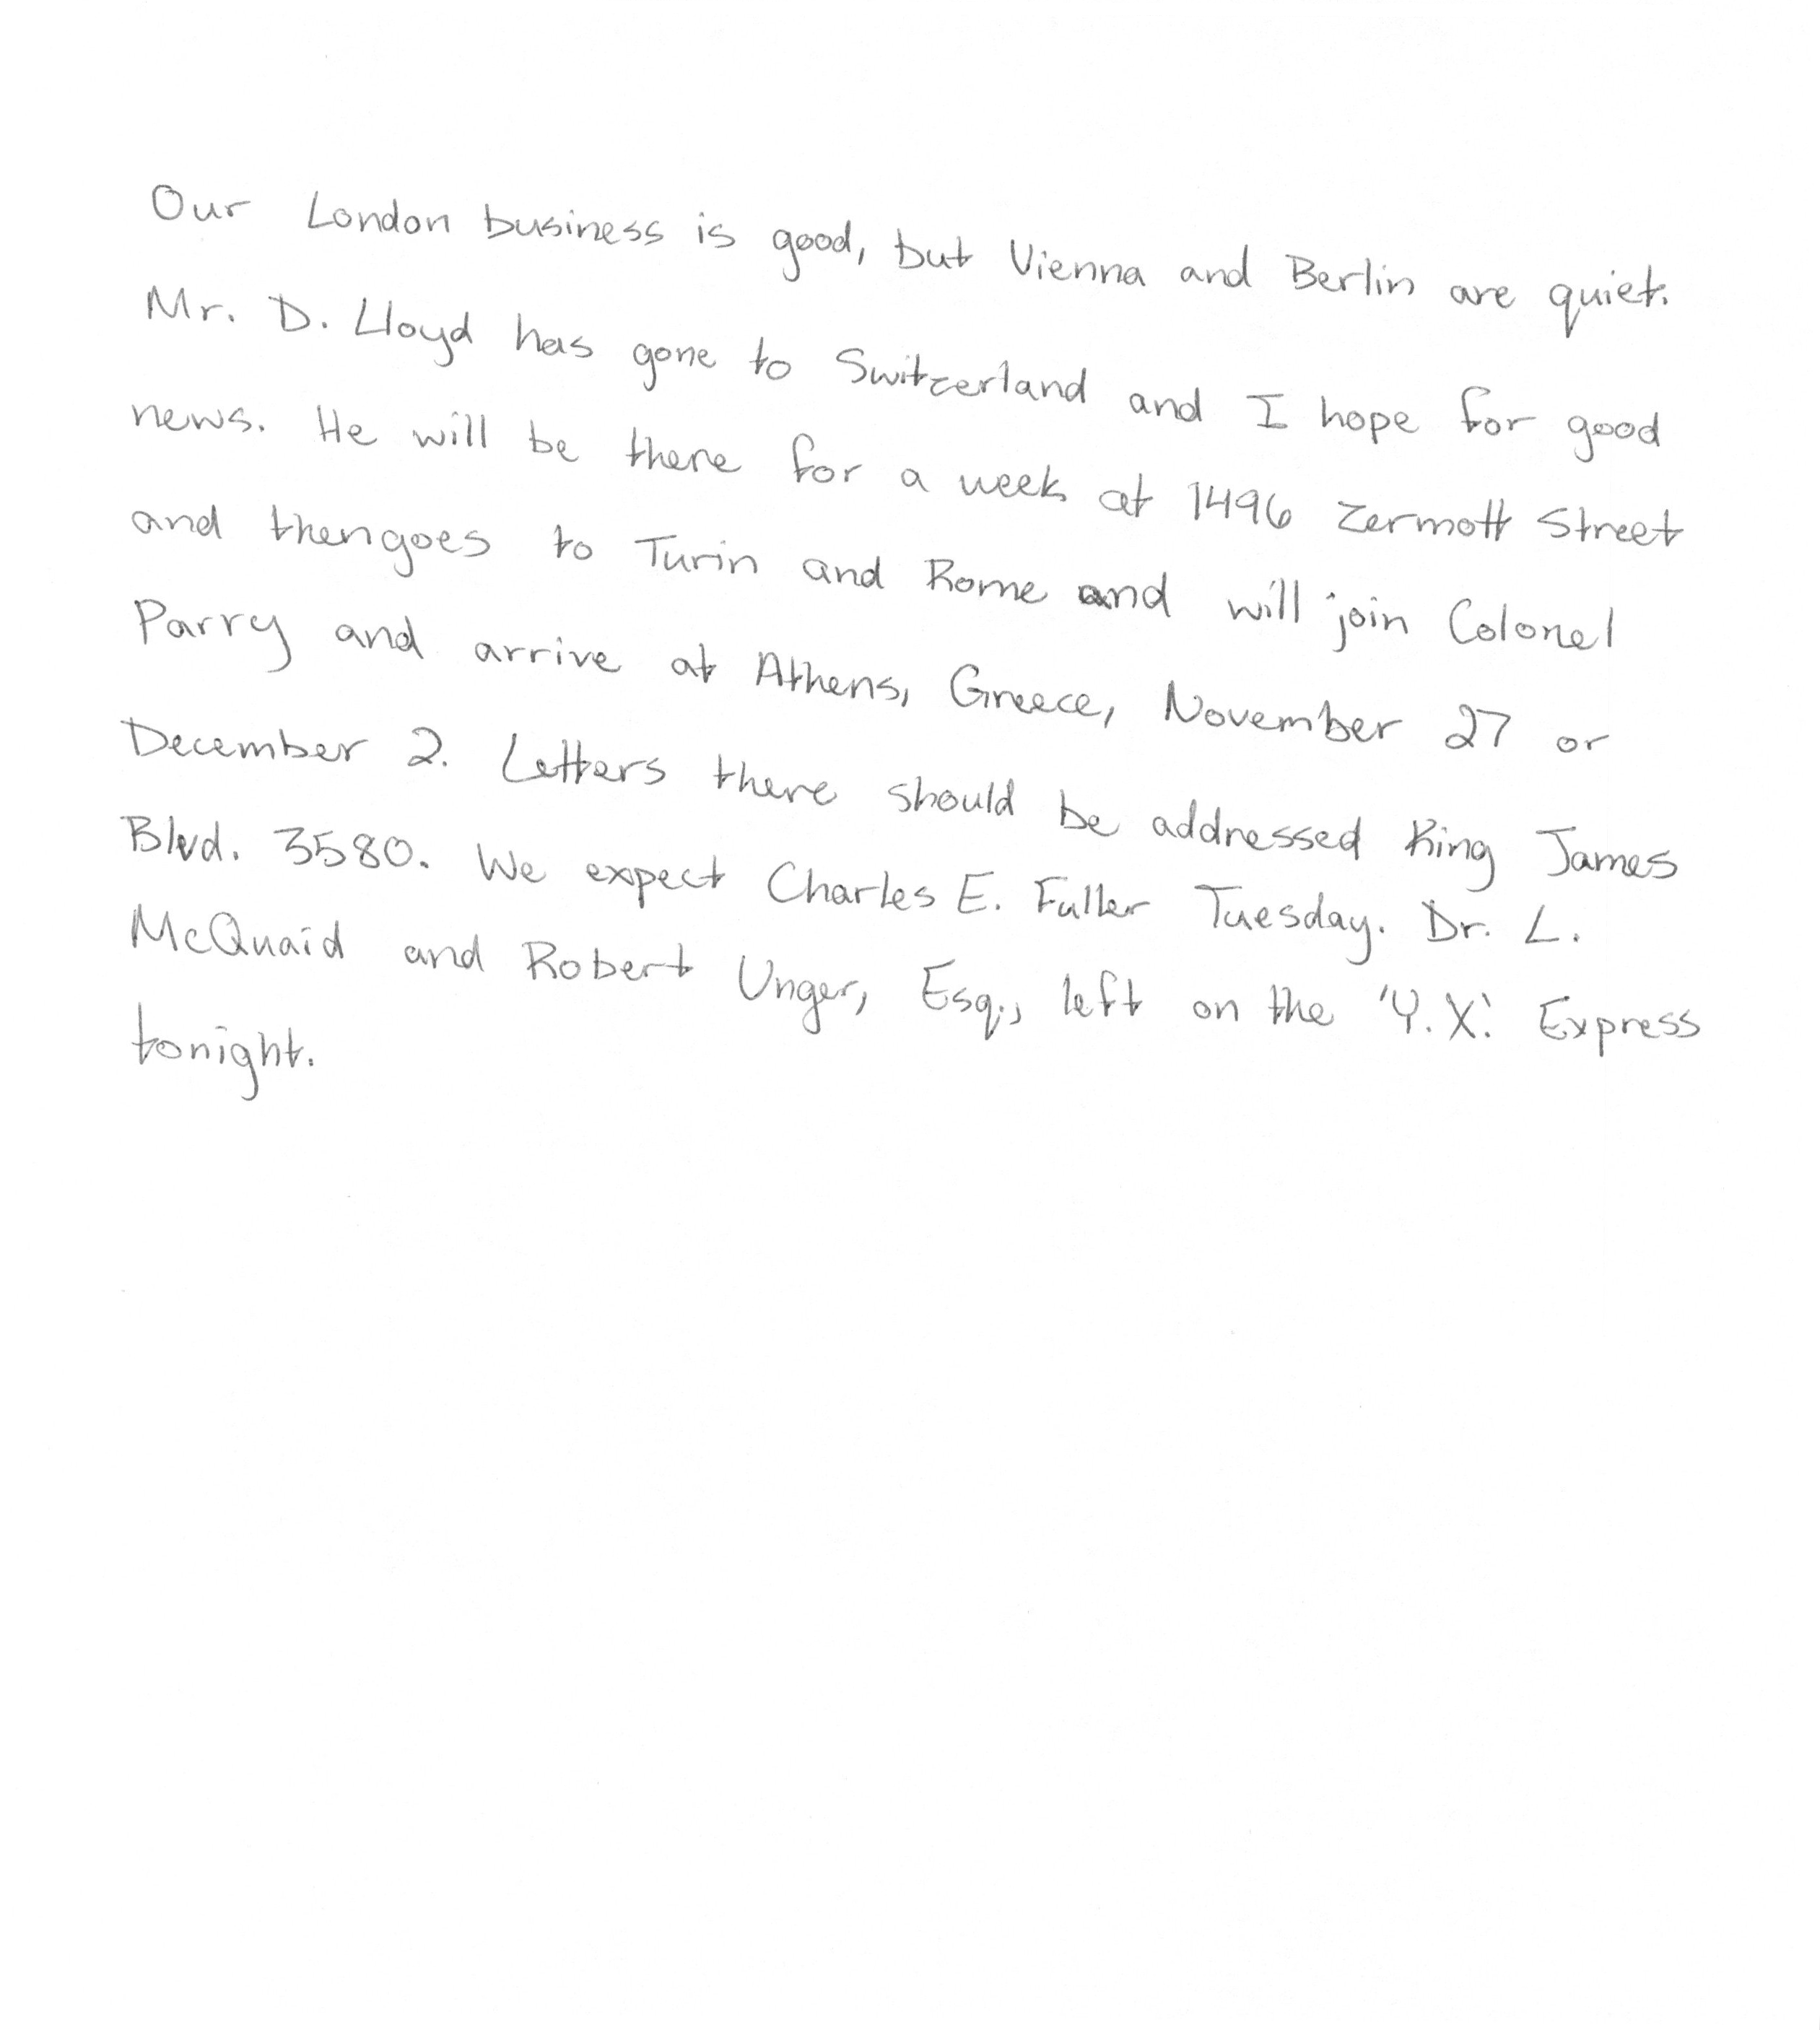 Our London business is good, but Vienna and Berlin are quiet.
Mr. D. Lloyd has gone to Switzerland and I hope for good
news. He will be there for a week at 1496 Zermott Street
and thengoes to Turin and Rome and will join Colonel
Parry and arrive at Athens, Greece, November 27 or
December 2. Letters there should be addressed King James
Blvd. 3580. We expect Charles E. Fuller Tuesday. Dr. L.
McQuaid and Robert Unger, Esq., left on the 'Y.X.' Express
tonight.